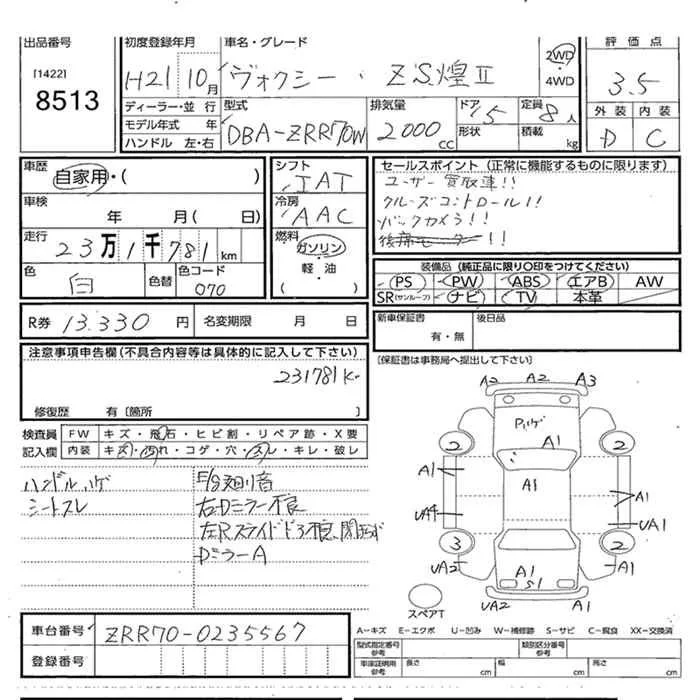 出品番号
[1422]
8513
初度登録年月
H21 10月
車名・グレード
ヴォクシー・ ZS煌Ⅱ
2WD
・
4WD
評価点
3.5
外装 内装
D C
ディーラー・並行
モデル年式 年
ハンドル 左・右
型式
DBA-ZRR70W
排気量
2000 cc
ドア 5
形状
定員 8人
積載 kg
車歴
自家用・( )
車検
年 月( 日)
走行
23万1千781km
色
白
色替
色コード
070
シフト
IAT
冷房
AAC
燃料
ガソリン
・
軽・油
( )
セールスポイント(正常に機能するものに限ります)
ユーザー買取車!!
クルーズコントロール!!
バックカメラ!!
装備品(純正品に限り〇印をつけてください)
PS PW ABS エアB AW
SR(サンルーフ) ナビ TV 本革
新車保証書
有・無
後日品
[保証書は事務局へ提出して下さい]
R券 13.330円
名変期限 月 日
注意事項申告欄(不具合内容等は具体的に記入して下さい)
231781K
修復歴 有[箇所 ]
検査員
記入欄
FW キズ・飛石・ヒビ割・リペア跡・X要
内装 キズ・汚れ・コゲ・穴・スレ・キレ・破レ
ハンドルハゲ
シートスレ
E/S廻り音
右Dミラー不良
DミラーA
A2 A2 A3
Pハゲ
2 2
A1
A1
A1
A1
UA4
UA1
3 2
UA2
A1
A1
S1
UA2 A1
スペアT
A-キズ E-エクボ U-凹み W-補修跡 S-サビ C-腐食 XX-交換済
車台番号 ZRR70-0235567
登録番号
型式指定番号
参考
類別区分番号
参考
車庫証明用
参考
長さ cm
幅 cm
高さ cm